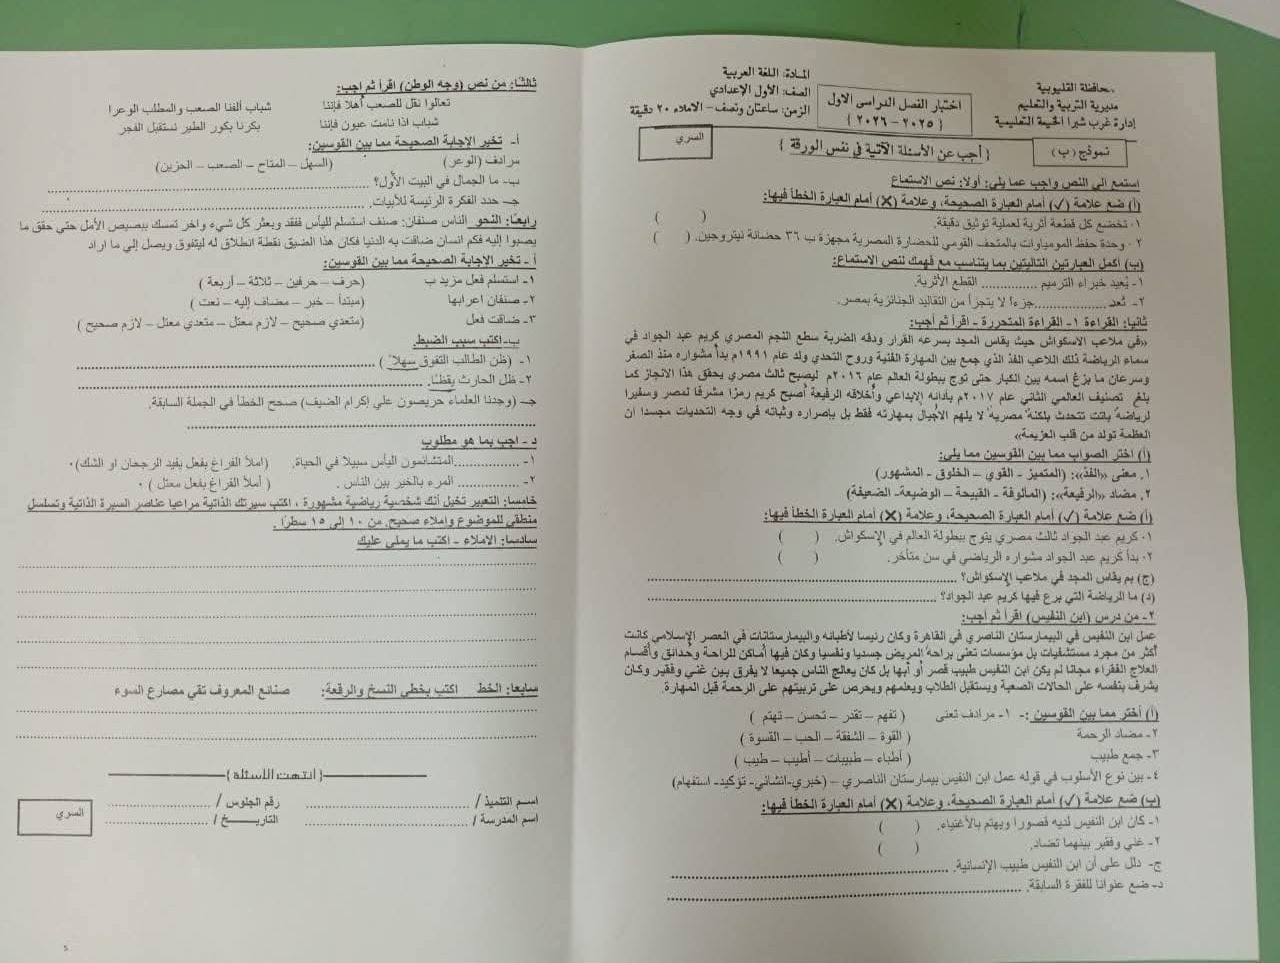 محافظة القليوبية
مديرية التربية والتعليم
إدارة غرب شبرا الخيمة التعليمية
اختبار الفصل الدراسى الاول
{ ٢٠٢٥ – ٢٠٢٦ }
المادة: اللغة العربية
الصف: الأول الإعدادي
الزمن: ساعتان ونصف – الاملاء ٢٠ دقيقة
نموذج (ب)
{ أجب عن الأسئلة الآتية في نفس الورقة }
السري
استمع الي النص واجب عما يلي: أولا: نص الاستماع
(أ) ضع علامة (✓) أمام العبارة الصحيحة، وعلامة (✗) أمام العبارة الخطأ فيها:
١- تخضع كل قطعة أثرية لعملية توثيق دقيقة. ( )
٢- وحدة حفظ المومياوات بالمتحف القومي للحضارة المصرية مجهزة ب ٣٦ حضانة نيتروجين. ( )
(ب) أكمل العبارتين التاليتين بما يتناسب مع فهمك لنص الاستماع:
١- يُعيد خبراء الترميم .............. القطع الأثرية.
٢- تُعد ..................جزءًا لا يتجزأ من التقاليد الجنائزية بمصر.
ثانيا: القراءة ١- القراءة المتحررة - اقرأ ثم أجب:
«في ملاعب الاسكواش حيث يقاس المجد بسرعه القرار ودقه الضربة سطع النجم المصري كريم عبد الجواد في
سماء الرياضة ذلك اللاعب الفذ الذي جمع بين المهارة الفنية وروح التحدي ولد عام ١٩٩١م بدأ مشواره منذ الصغر
وسرعان ما بزغ اسمه بين الكبار حتى توج ببطولة العالم عام ٢٠١٦م ليصبح ثالث مصري يحقق هذا الانجاز كما
بلغ تصنيف العالمي الثاني عام ٢٠١٧م بأدائه الإبداعي وأخلاقه الرفيعة أصبح كريم رمزا مشرفا لمصر وسفيرا
لرياضة باتت تتحدث بلكنة مصرية لا يلهم الأجيال بمهارته فقط بل بإصراره وثباته في وجه التحديات مجسدا ان
العظمة تولد من قلب العزيمة»
(أ) اختر الصواب مما بين القوسين مما يلي:
١. معنى «الفذ»: (المتميز - القوي – الخلوق - المشهور)
٢. مضاد «الرفيعة»: (المألوفة - القبيحة – الوضيعة- الضعيفة)
(أ) ضع علامة (✓) أمام العبارة الصحيحة، وعلامة (✗) أمام العبارة الخطأ فيها:
١- كريم عبد الجواد ثالث مصري يتوج ببطولة العالم في الإسكواش. ( )
٢- بدأ كريم عبد الجواد مشواره الرياضي في سن متأخر. ( )
(ج) بم يقاس المجد في ملاعب الإسكواش؟ ..............................
(د) ما الرياضة التي برع فيها كريم عبد الجواد؟ ..............................
٢- من درس (ابن النفيس) اقرأ ثم أجب:
عمل ابن النفيس في البيمارستان الناصري في القاهرة وكان رئيسا لأطبائه والبيمارستانات في العصر الإسلامي كانت
أكثر من مجرد مستشفيات بل مؤسسات تعنى براحة المريض جسديا ونفسيا وكان فيها أماكن للراحة وحدائق وأقسام
العلاج الفقراء مجانا لم يكن ابن النفيس طبيب قصر أو أبها بل كان يعالج الناس جميعا لا يفرق بين غني وفقير وكان
يشرف بنفسه على الحالات الصعبة ويستقبل الطلاب ويعلمهم ويحرص على تربيتهم على الرحمة قبل المهارة.
(أ) أختر مما بين القوسين :- ١- مرادف تعنى ( تفهم – تقدر – تحسن – تهتم )
٢- مضاد الرحمة ( القوة – الشفقة – الحب – القسوة )
٣- جمع طبيب ( أطباء – طبيبات – أطيب – طيب )
٤- بين نوع الأسلوب في قوله عمل ابن النفيس بيمارستان الناصري – (خبري-انشائي- توكيد- استفهام)
(ب) ضع علامة (✓) أمام العبارة الصحيحة، وعلامة (✗) أمام العبارة الخطأ فيها:
١- كان ابن النفيس لديه قصورا ويهتم بالأغنياء. ( )
٢- غني وفقير بينهما تضاد. ( )
ج- دلل على أن ابن النفيس طبيب الإنسانية. ..............................
د- ضع عنوانا للفقرة السابقة. ..............................
ثالثًا: من نص (وجه الوطن) اقرأ ثم اجب:
تعالوا نقل للصعب أهلا فإننا شباب ألفنا الصعب والمطلب الوعرا
شباب اذا نامت عيون فإننا بكرنا بكور الطير نستقبل الفجر
أ- تخير الإجابة الصحيحة مما بين القوسين:
مرادف (الوعر) (السهل – المتاح – الصعب – الحزين)
ب- ما الجمال في البيت الأول؟ ..............................
جـ- حدد الفكرة الرئيسة للأبيات. ..............................
رابعًا: النحو الناس صنفان: صنف استسلم لليأس ففقد وبعثر كل شيء واخر تمسك ببصيص الأمل حتى حقق ما
يصبوا إليه فكم انسان ضاقت به الدنيا فكان هذا الضيق نقطة انطلاق له ليتفوق ويصل إلي ما اراد
أ - تخير الإجابة الصحيحة مما بين القوسين:
١- استسلم فعل مزيد ب (حرف – حرفين – ثلاثة – أربعة )
٢- صنفان اعرابها (مبتدأ – خبر – مضاف إليه – نعت )
٣- ضاقت فعل (متعدي صحيح – لازم معتل – متعدي معتل – لازم صحيح )
ب-اكتب سبب الضبط.
١- (ظن الطالب التفوق سهلاً ) ..............................
٢- ظل الحارث يقظًا. ..............................
جـ- (وجدنا العلماء حريصون علي إكرام الضيف) صحح الخطأ في الجملة السابقة.
..............................
د - اجب بما هو مطلوب
١- ..................المتشائمون اليأس سبيلا في الحياة. (املأ الفراغ بفعل يفيد الرجحان او الشك)٠
٢- .................. المرء بالخير بين الناس . ( أملأ الفراغ بفعل معتل ) ٠
خامسا: التعبير تخيل أنك شخصية رياضية مشهورة ، اكتب سيرتك الذاتية مراعيا عناصر السيرة الذاتية وتسلسل
منطقي للموضوع وإملاء صحيح. من ١٠ إلى ١٥ سطرًا .
سادسا: الاملاء - اكتب ما يملى عليك
..............................
..............................
..............................
..............................
..............................
سابعا: الخط اكتب بخطي النسخ والرقعة: صنائع المعروف تقي مصارع السوء
..............................
..............................
{ انتهت الأسئلة }
اسم التلميذ / .............................. رقم الجلوس / ....................
اسم المدرسة / .............................. التاريـــخ / ....................
السري
5